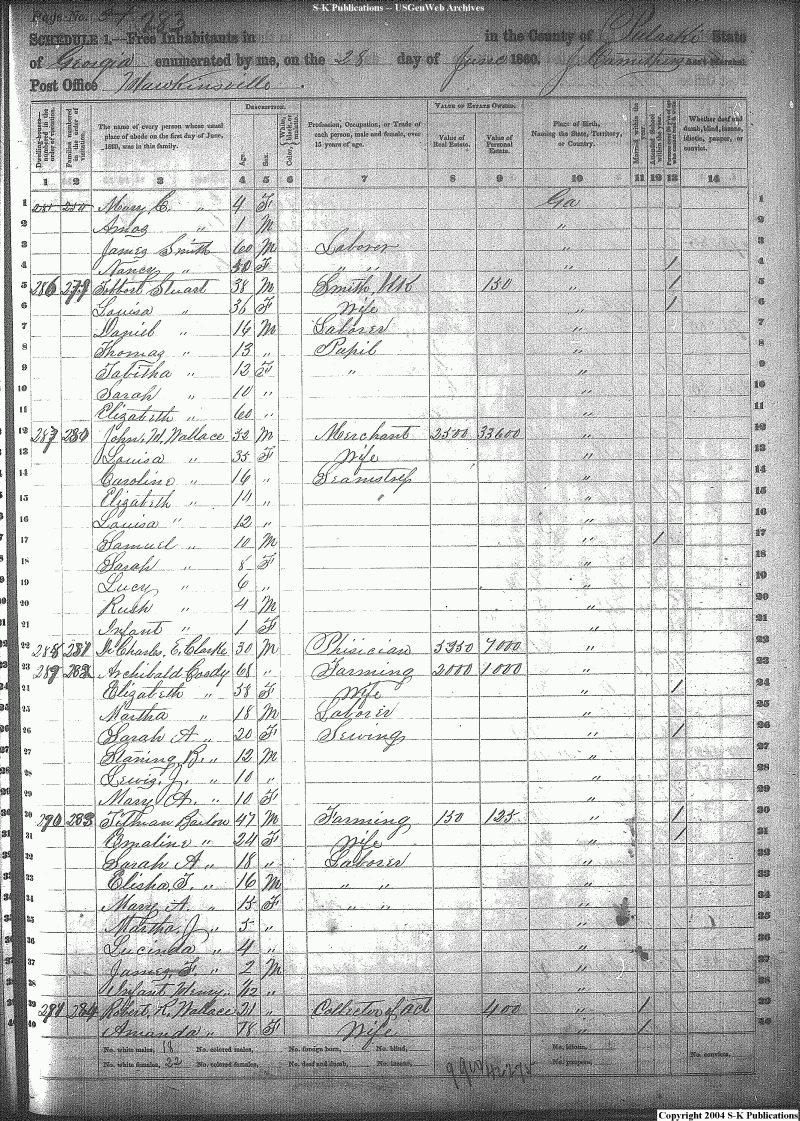 S-K Publications -- USGenWeb Archives
Page No. 283
SCHEDULE 1.—Free Inhabitants in in the County of Pulaski State
of Georgia enumerated by me, on the 28 day of June 1860.
Post Office Hawkinsville
DESCRIPTION. VALUE OF ESTATE OWNED.
Dwelling-houses—numbered in the order of visitation. Families numbered in the order of visitation. The name of every person whose usual place of abode on the first day of June, 1860, was in this family. Age. Sex. Color, White, black, or mulatto. Profession, Occupation, or Trade of each person, male and female, over 15 years of age. Value of Real Estate. Value of Personal Estate. Place of Birth, Naming the State, Territory, or Country. Married within the year. Attended School within the year. Whether deaf and dumb, blind, insane, idiotic, pauper, or convict.
1 2 3 4 5 6 7 8 9 10 11 12 13 14
1 Mary C. " 4 F Ga 1
2 Amaz " 1 M " 2
3 James Smith 60 M Laborer " 3
4 Nancy " 50 F " " " 1 4
5 286 279 Stuart 38 M Smith 150 " 1 5
6 Louisa " 36 F Wife " 1 6
7 Daniel " 16 M Laborer " 7
8 Thomas " 13 " Pupil " 8
9 Tabitha " 12 F " " 9
10 Sarah " 10 " " 10
11 Elizabeth " 60 " " 11
12 287 280 John M. Wallace 52 M Merchant 2500 33600 " 12
13 Louisa " 35 F Wife " 13
14 Caroline " 16 " Seamstress " 14
15 Elizabeth " 14 " " " 15
16 Louisa " 12 " " 16
17 Samuel " 10 M " 1 17
18 Sarah " 8 F " 18
19 Lucy " 6 " " 19
20 Rush " 4 M " 20
21 Infant " 1 F " 21
22 288 281 Dr Charles E. Clarke 30 M Phisician 5350 7000 " 22
23 289 282 Archibald Coody 68 " Farming 2000 1000 " 23
24 Elizabeth " 58 F Wife " 1 24
25 Martha " 18 M Laborer " 25
26 Sarah A " 20 F Sewing " 1 26
27 Staning B. " 12 M " 27
28 Lewis J. " 10 " " 28
29 Mary A. " 10 F " 29
30 290 283 Tilman Barlow 47 M Farming 150 125 " 1 30
31 Emaline " 24 F Wife " 1 31
32 Sarah A " 18 " Laborer " 32
33 Elisha T. " 16 M " " " 33
34 Mary A. " 15 F " " " 34
35 Martha J " 5 " " 35
36 Lucinda " 4 " " 36
37 James F. " 2 M " 37
38 Infant Henry " " " 38
39 291 284 Robert H. Wallace 21 " Collector of act 400 " 1 39
40 Amanda " 18 F Wife " 1 40
No. white males, 18 No. colored males, No. foreign born, No. blind, No. idiotic, No. convicts,
No. white females, 22 No. colored females, No. deaf and dumb, No. insane, No. paupers,
Copyright 2004 S-K Publications